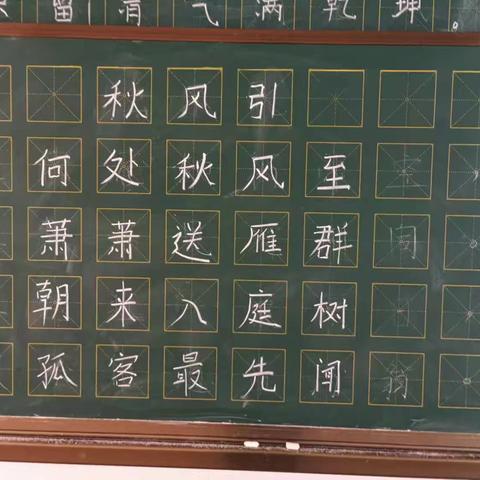 留清气满乾坤。
秋风引
何处秋风至
萧萧送雁群
朝来入庭树
孤客最先闻